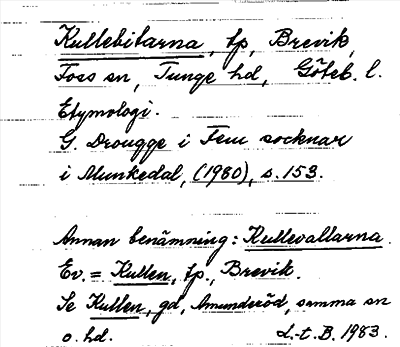 Kullebitarna, tp, Brevik,
Foss sn, Tunge hd, Göteb. l.
Etymologi.
G. Drougge i Fem socknar
i Munkedal, (1980), s. 153.
Annan benämning: Kullevallarna.
Ev. = Kullen, tp., Brevik.
Se Kullen, gd, Amunderöd, samma sn
o. hd. L-t. B. 1983.